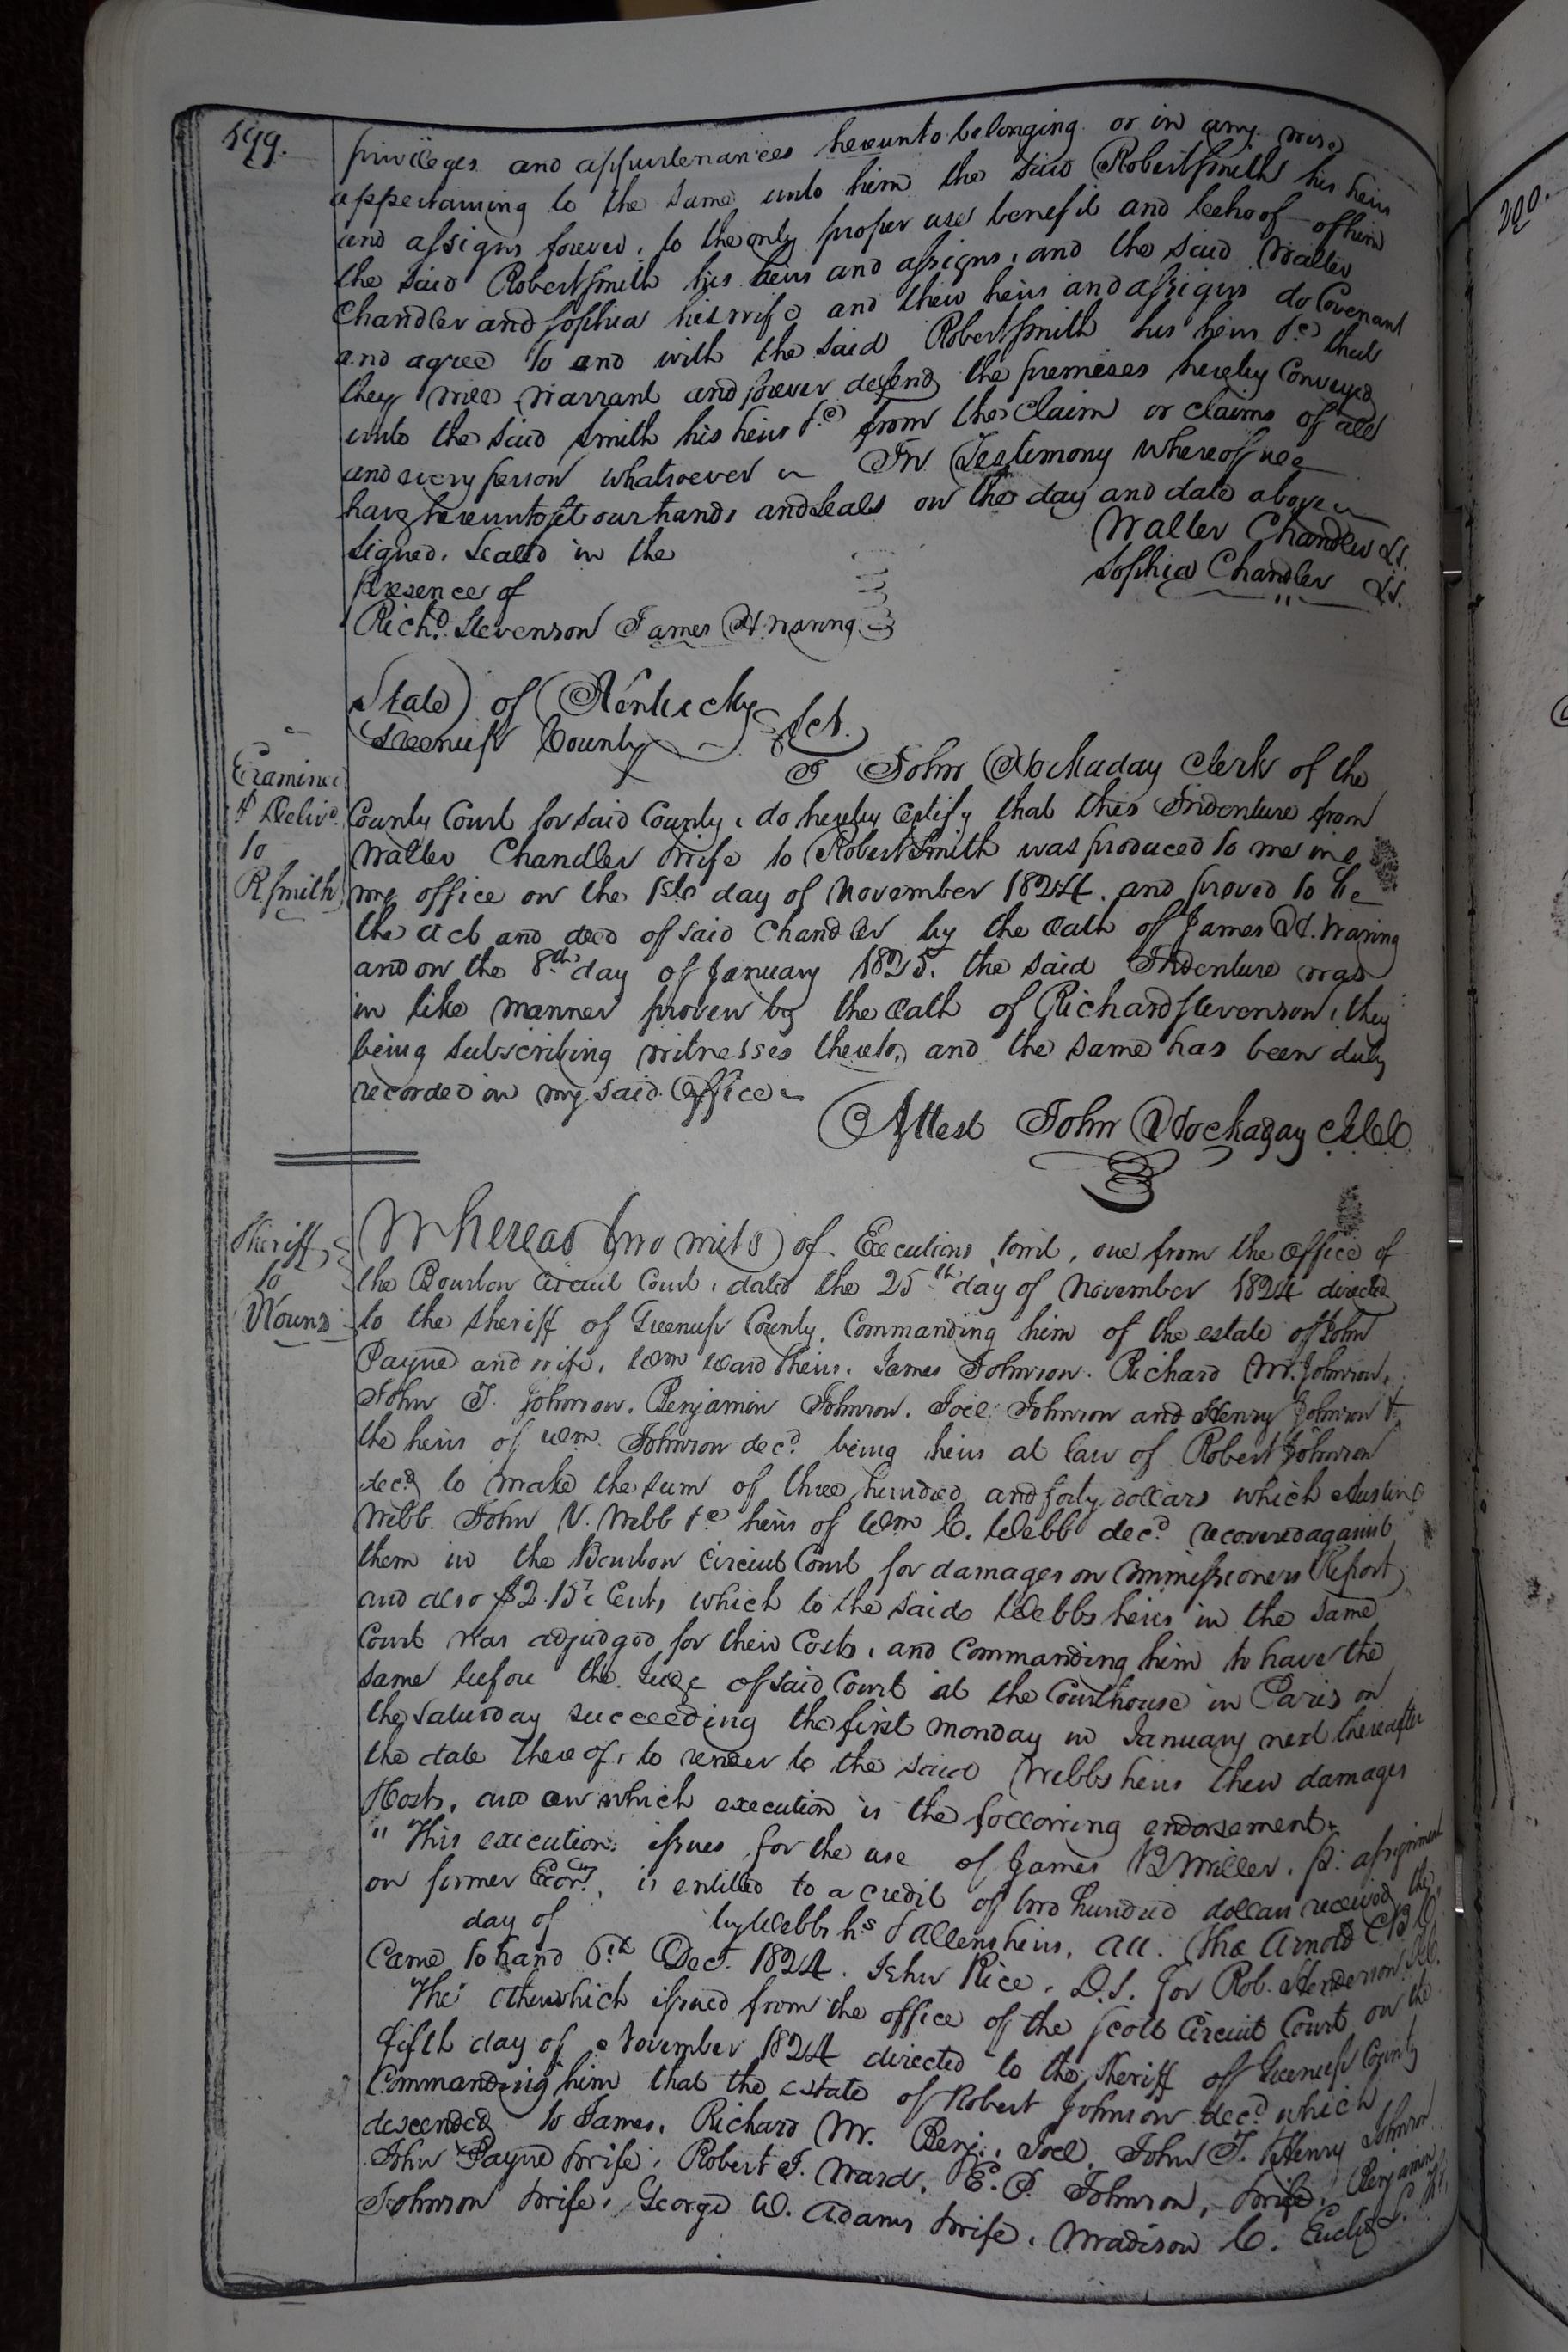 199.
privileges and appurtenances hereunto belonging or in any wise
appertaining to the same unto him the said Robert Smith his heirs
and assigns forever, to the only proper use benefit and behoof of him
the said Robert Smith his heirs and assigns, and the said Walter
Chandler and Sophia his wife and their heirs and assigns do Covenant
and agree to and with the said Robert Smith his heirs &c that
they will Warrant and forever defend the premises hereby Conveyed
unto the said Smith his heirs &c from the Claim or claims of all
and every person whatsoever In Testimony whereof we
have hereunto set our hands and seals on the day and date above
Walter Chandler LS.
Signed. Sealed in the
Sophia Chandler LS.
presence of
Richd. Stevenson James H. Waring
State of Kentucky
Greenup County Sct.
I John Hockaday Clerk of the
Examined
& Delivd.
to
R Smith
County Court for said County, do hereby Certify that this Indenture from
Walter Chandler & wife to Robert Smith was produced to me in
my office on the 1st day of November 1824. and proved to be
the act and deed of said Chandler by the oath of James H. Waring
and on the 8th day of January 1825. the said Indenture was
in like manner proven by the oath of Richard Stevenson, they
being subscribing witnesses thereto, and the same has been duly
recorded in my said office
Attest John Hockaday
Sheriff
to
Whereas two writs of Executions towit, one from the office of
the Bourbon Circuit Court, dated the 25th day of November 1824 directed
to the Sheriff of Greenup County, Commanding him of the estate of John
Payne and wife, Wm Ward heirs. James Johnson. Richard M. Johnson,
John T. Johnson. Benjamin Johnson. Joel Johnson and Henry Johnson &
the heirs of Wm. Johnson decd. being heirs at law of Robert Johnson
decd. to make the sum of three hundred and forty dollars which Austin
Webb. John V. Webb &c heirs of Wm C. Webb decd. recovered against
them in the Bourbon Circuit Court for damages on Commissioners Report
and also $2.15 Cents which to the said Webbs heirs in the same
Court was adjudged for their Costs, and Commanding him to have the
same before the Judge of said Court at the Courthouse in Paris on
the Saturday succeeding the first Monday in January next thereafter
the date thereof, to render to the said Webbs heirs their damages
& Costs, and on which execution is the following endorsement
"This execution issues for the use of James Miller. assignment
on former Exon. is entitled to a credit of two hundred dollars received the
day of by Webbs hs & Allens heirs, att. Tho Arnold
Came to hand 6th Dec. 1824. John Rice, D.S. for Rob. Henderson
The other which issued from the office of the Scott Circuit Court on the
fifth day of November 1824 directed to the Sheriff of Greenup County
Commanding him that the estate of Robert Johnson decd. which
descended to James, Richard M. Benj., Joel, John T. & Henry Johnson
John Payne & wife, Robert J. Ward, E. P. Johnson, & wife, Benjamin
Johnson & wife, George W. Adams & wife, Madison C. Euclid L.